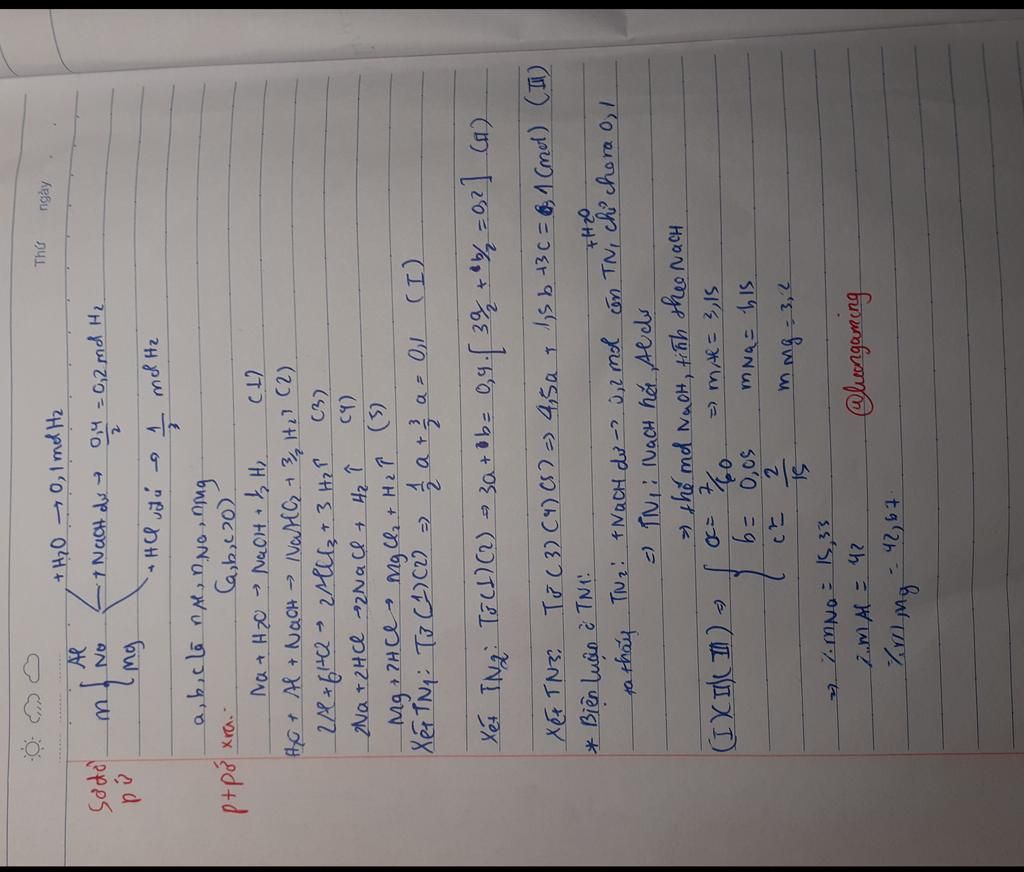 Thứ ngày
Sơ đồ pứ
+H2O → 0,1 mol H2
m { Al Na Mg → +NaOH dư → 0,4/2 = 0,2 mol H2
+HCl vđủ → 1/3 mol H2
a, b, c là nAl, nNa, nMg
(a, b, c > 0)
p+pứ xra:
Na + H2O → NaOH + ½ H2 (1)
H2O + Al + NaOH → NaAlO2 + 3/2 H2↑ (2)
2Al + 6HCl → 2AlCl3 + 3H2↑ (3)
2Na + 2HCl → 2NaCl + H2↑ (4)
Mg + 2HCl → MgCl2 + H2↑ (5)
Xét TN1: Từ (1)(2) => 1/2 a + 3/2 a = 0,1 (I)
Xét TN2: Từ (1)(2) => 3a + b = 0,4. [3a/2 + b/2 = 0,2] (II)
Xét TN3: Từ (3)(4)(5) => 4,5a + 1,5b + 3c = 1 (mol) (III)
* Biện luận ở TN1:
ta thấy TN2: +NaOH dư → 0,2 mol còn TN1 +H2O chỉ cho ra 0,1
=> TN1: NaOH hết, Al dư
=> thế mol NaOH, tính theo NaOH
(I)(II)(III) => { a = 7/60 => mAl = 3,15
b = 0,05 mNa = 1,15
c = 2/15 mMg = 3,2
=> %mNa = 15,33
%mAl = 42
%mMg = 42,67.
@luongaming